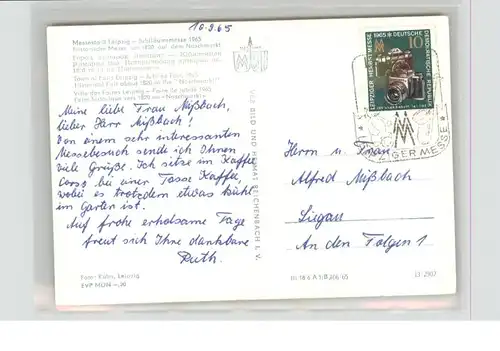 10.9.65
Messestadt Leipzig – Jubiläumsmesse 1965
Historische Messe um 1820 auf dem Naschmarkt
Town of Fairs Leipzig – Jubilee Fair 1965
Meine liebe Frau Mißbach,
lieber Herr Mißbach!
Von einem sehr interessanten
Messebesuch sende ich Ihnen
viele Grüße. Ich sitze im Kaffee
Corso bei einer Tasse Kaffee,
wobei es trotzdem etwas kühl
im Garten ist.
Auf frohe erholsame Tage
freut sich Ihre dankbare
Ruth.
Foto: Kühn, Leipzig
EVP MDN –,20
VEB BILD UND HEIMAT REICHENBACH I. V.
LEIPZIGER HERBSTMESSE
1965
DEUTSCHE DEMOKRATISCHE REPUBLIK
10
LEIPZIGER MESSE
Herrn u. Frau
Alfred Mißbach
Lugau
An den Folgen 1